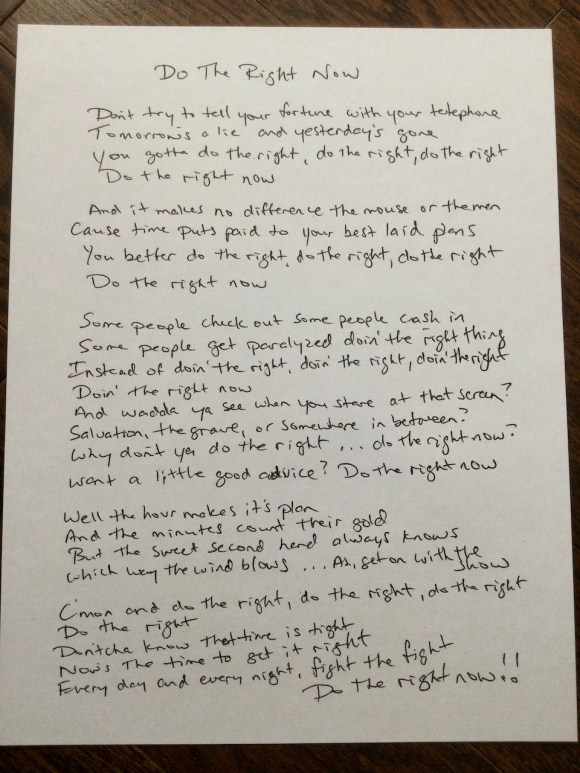 Do The Right Now
Don't try to tell your fortune with your telephone
Tomorrow's a lie and yesterday's gone
You gotta do the right, do the right, do the right
Do the right now
And it makes no difference the mouse or the men
Cause time puts paid to your best laid plans
You better do the right, do the right, do the right
Do the right now
Some people check out some people cash in
Some people get paralyzed doin' the right thing
Instead of doin' the right, doin' the right, doin' the right
Doin' the right now
And wadda ya see when you stare at that screen?
Salvation, the grave, or somewhere in between?
Why don't ya do the right ... do the right now?
Want a little good advice? Do the right now
Well the hour makes it's plan
And the minutes count their gold
But the sweet second hand always knows
Which way the wind blows ... Ah, get on with the show
C'mon and do the right, do the right, do the right
Do the right
Dontcha know that time is tight
Now's the time to get it right
Every day and every night, fight the fight
Do the right now!!